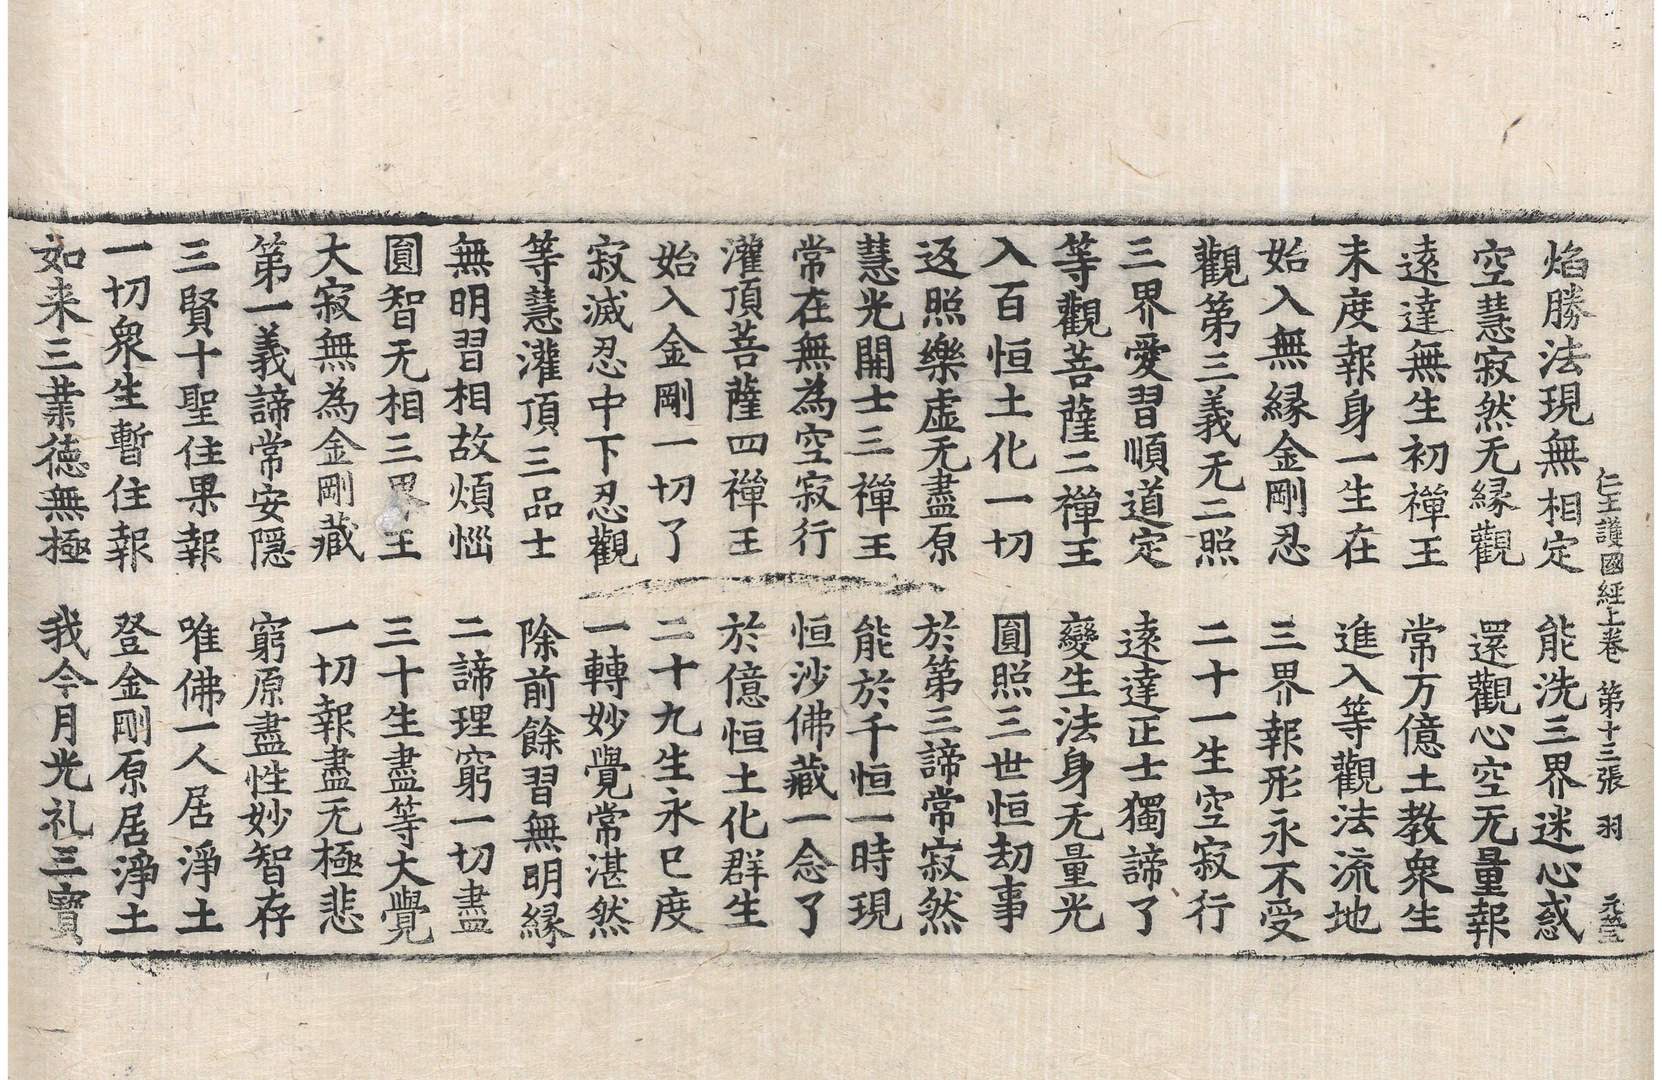 仁王護國經上卷 第十三張 羽 元瑩
焰勝法現無相定 能洗三界迷心惑
空慧寂然无縁觀 還觀心空无量報
遠達無生初禪王 常万億土教衆生
未度報身一生在 進入等觀法流地
始入無縁金剛忍 三界報形永不受
觀第三義无二照 二十一生空寂行
三界愛習順道定 遠達正士獨諦了
等觀菩薩二禪王 變生法身无量光
入百恒土化一切 圓照三世恒劫事
返照樂虛无盡原 於第三諦常寂然
慧光開士三禪王 能於千恒一時現
常在無為空寂行 恒沙佛藏一念了
灌頂菩薩四禪王 於億恒土化群生
始入金剛一切了 二十九生永已度
寂滅忍中下忍觀 一轉妙覺常湛然
等慧灌頂三品士 除前餘習無明縁
無明習相故煩惱 二諦理窮一切盡
圓智无相三界王 三十生盡等大覺
大寂無為金剛藏 一切報盡无極悲
第一義諦常安隱 窮原盡性妙智存
三賢十聖住果報 唯佛一人居淨土
一切衆生暫住報 登金剛原居淨土
如来三業徳無極 我今月光礼三寶